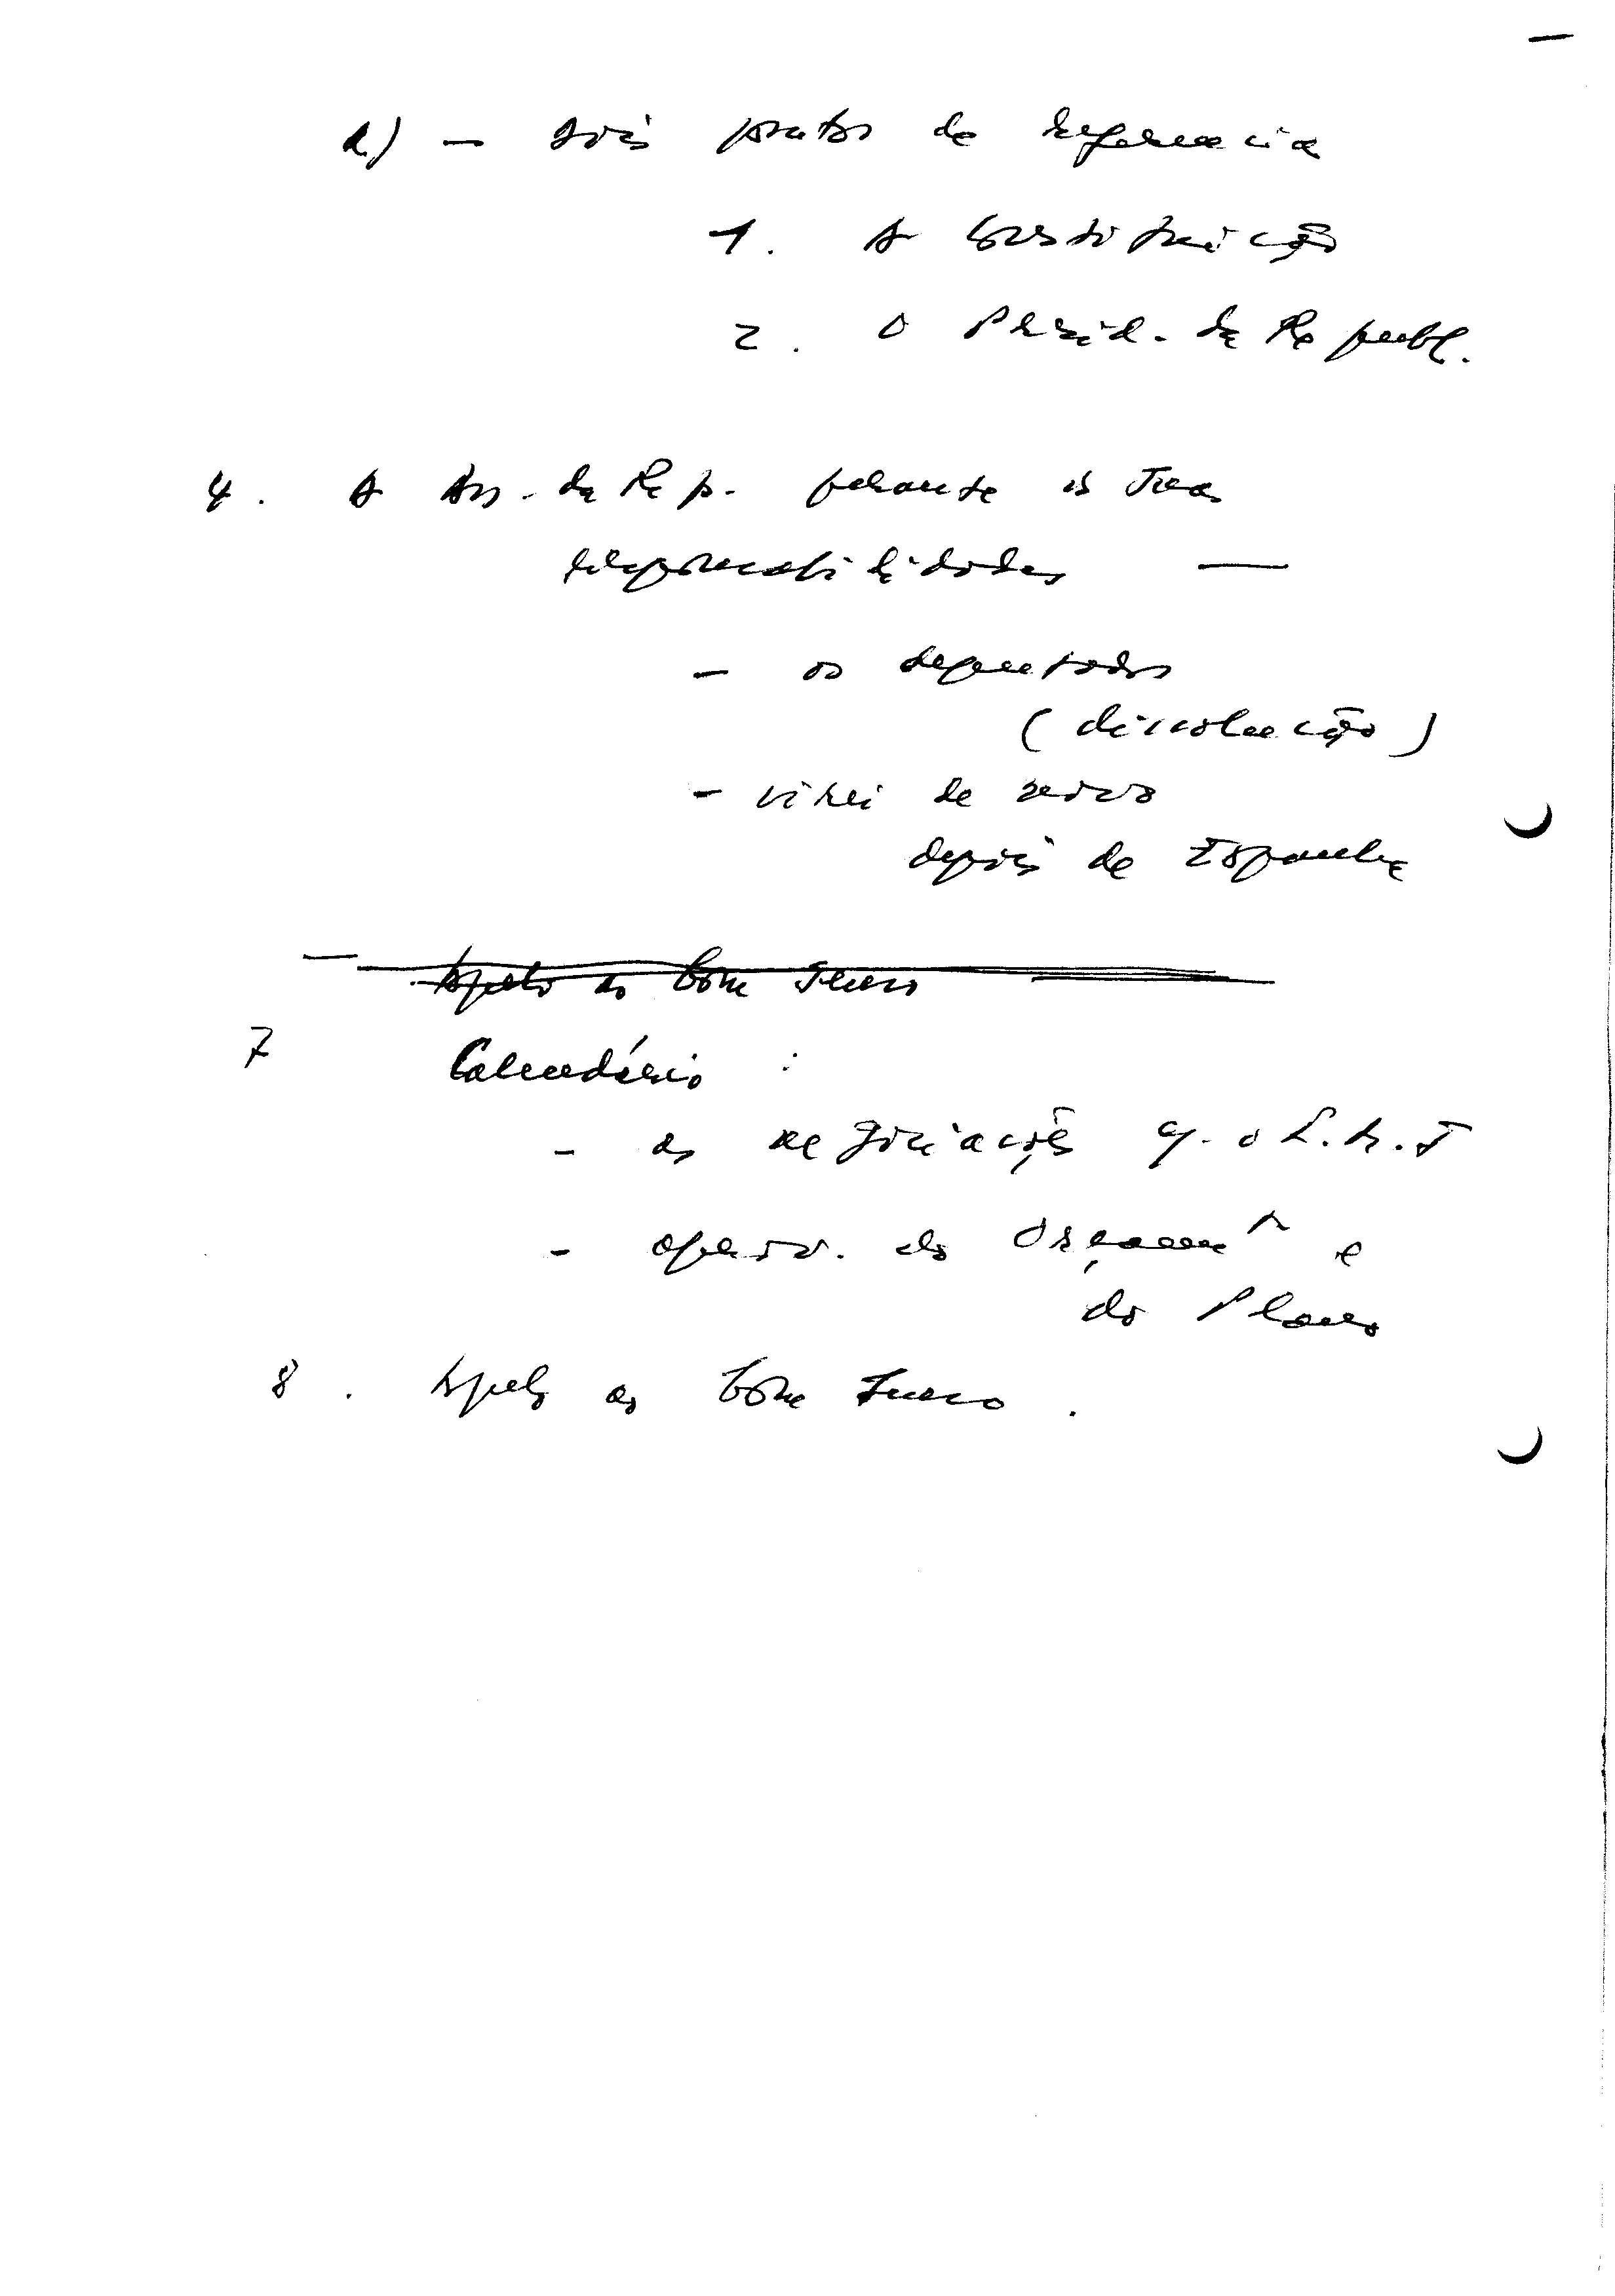 d) — dois pontos de referencia
1. A Constituição
2. O Presid. da Republ.
4. A Ass. da Rep. perante as suas
responsabilidades —
- os deputados
(dissolução)
- virei de novo
depois de Espanha
— Apelo ao bom senso
7 Calendário :
- as negociações c. o F.M.I
- aprov. do Orçamento e
do Plano
8. Apelo ao bom senso.